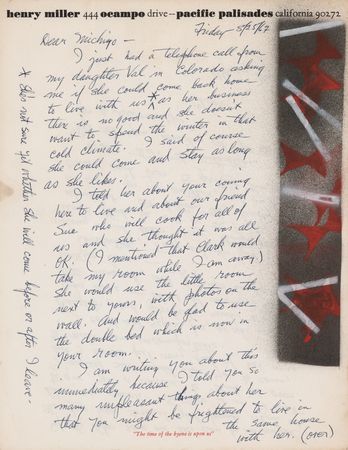 henry miller 444 ocampo drive—pacific palisades california 90272
Friday
Dear Michiyo –
I just had a telephone call from
my daughter Val in Colorado asking
me if she could come back home
to live with us * as her business
there is no good and she doesn't
want to spend the winter in that
cold climate. I said of course
she could come and stay as long
as she likes.
I told her about your coming
here to live and about our friend
Sue who will cook for all of
us and she thought it was all
OK. (I mentioned that Clark would
take my room while I am away)
She would use the little room
next to yours, with photos on the
wall. And would be glad to use
the double bed which is now in
your room.
I am writing you about this
immediately because I told you so
many unpleasant things about her
that you might be frightened to live in
the same house
with her. (over)
* She's not sure yet whether she will come before or after I leave –
"The time of the hyena is upon us"